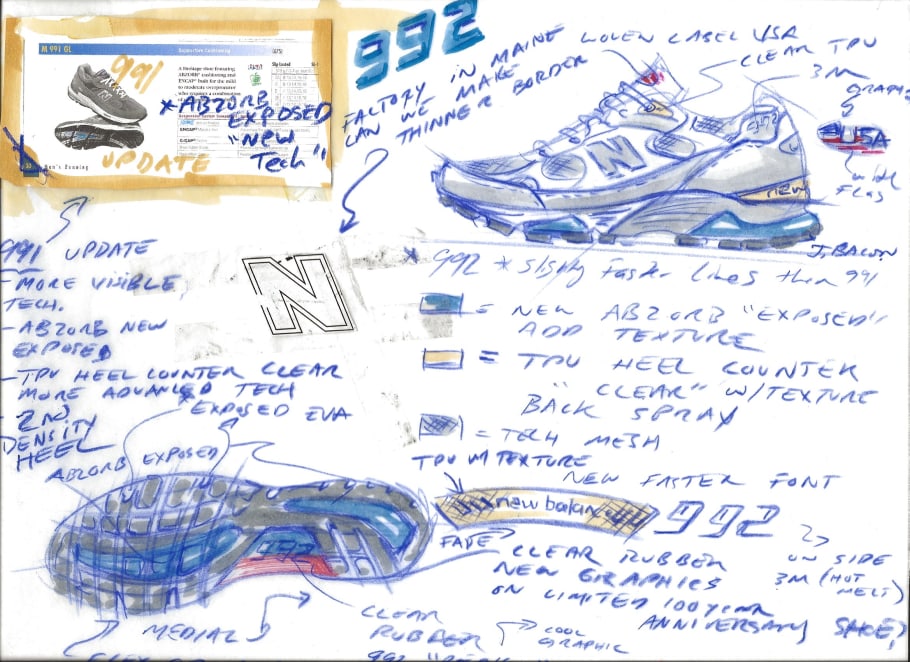 992
M 991 GL
Supportive Cushioning
A footage shoe featuring
ABZORB cushioning and
ENCAP built for the mild
to moderate overpronator
who requires a combination
991
* ABZORB
EXPOSED
"NEW
Tech"
UPDATE
Men's Running
FACTORY IN MAINE
CAN WE MAKE
THINNER BORDER
WOVEN LABEL USA
CLEAR TPU
3M
GRAPHIC
USA
with
FLAG
992
N
new
J. BACON
991 UPDATE
- MORE VISIBLE
TECH.
- ABZORB NEW
EXPOSED
- TPU HEEL COUNTER CLEAR
MORE ADVANCED TECH
- 2ND
DENSITY
HEEL
N
* 992 * Slightly Faster Lines then 991
= NEW ABZORB "EXPOSED"
ADD TEXTURE
= TPU HEEL COUNTER
"CLEAR" W/TEXTURE
BACK SPRAY
= TECH MESH
EXPOSED EVA
ABZORB EXPOSED
TPU W TEXTURE
new balan
FADE
NEW FASTER FONT
992
ON SIDE
3M (HOT
MELT)
CLEAR RUBBER
NEW GRAPHICS
ON LIMITED 100 YEAR
ANNIVERSARY SHOE?
MEDIAL
CLEAR
RUBBER
992
COOL
GRAPHIC